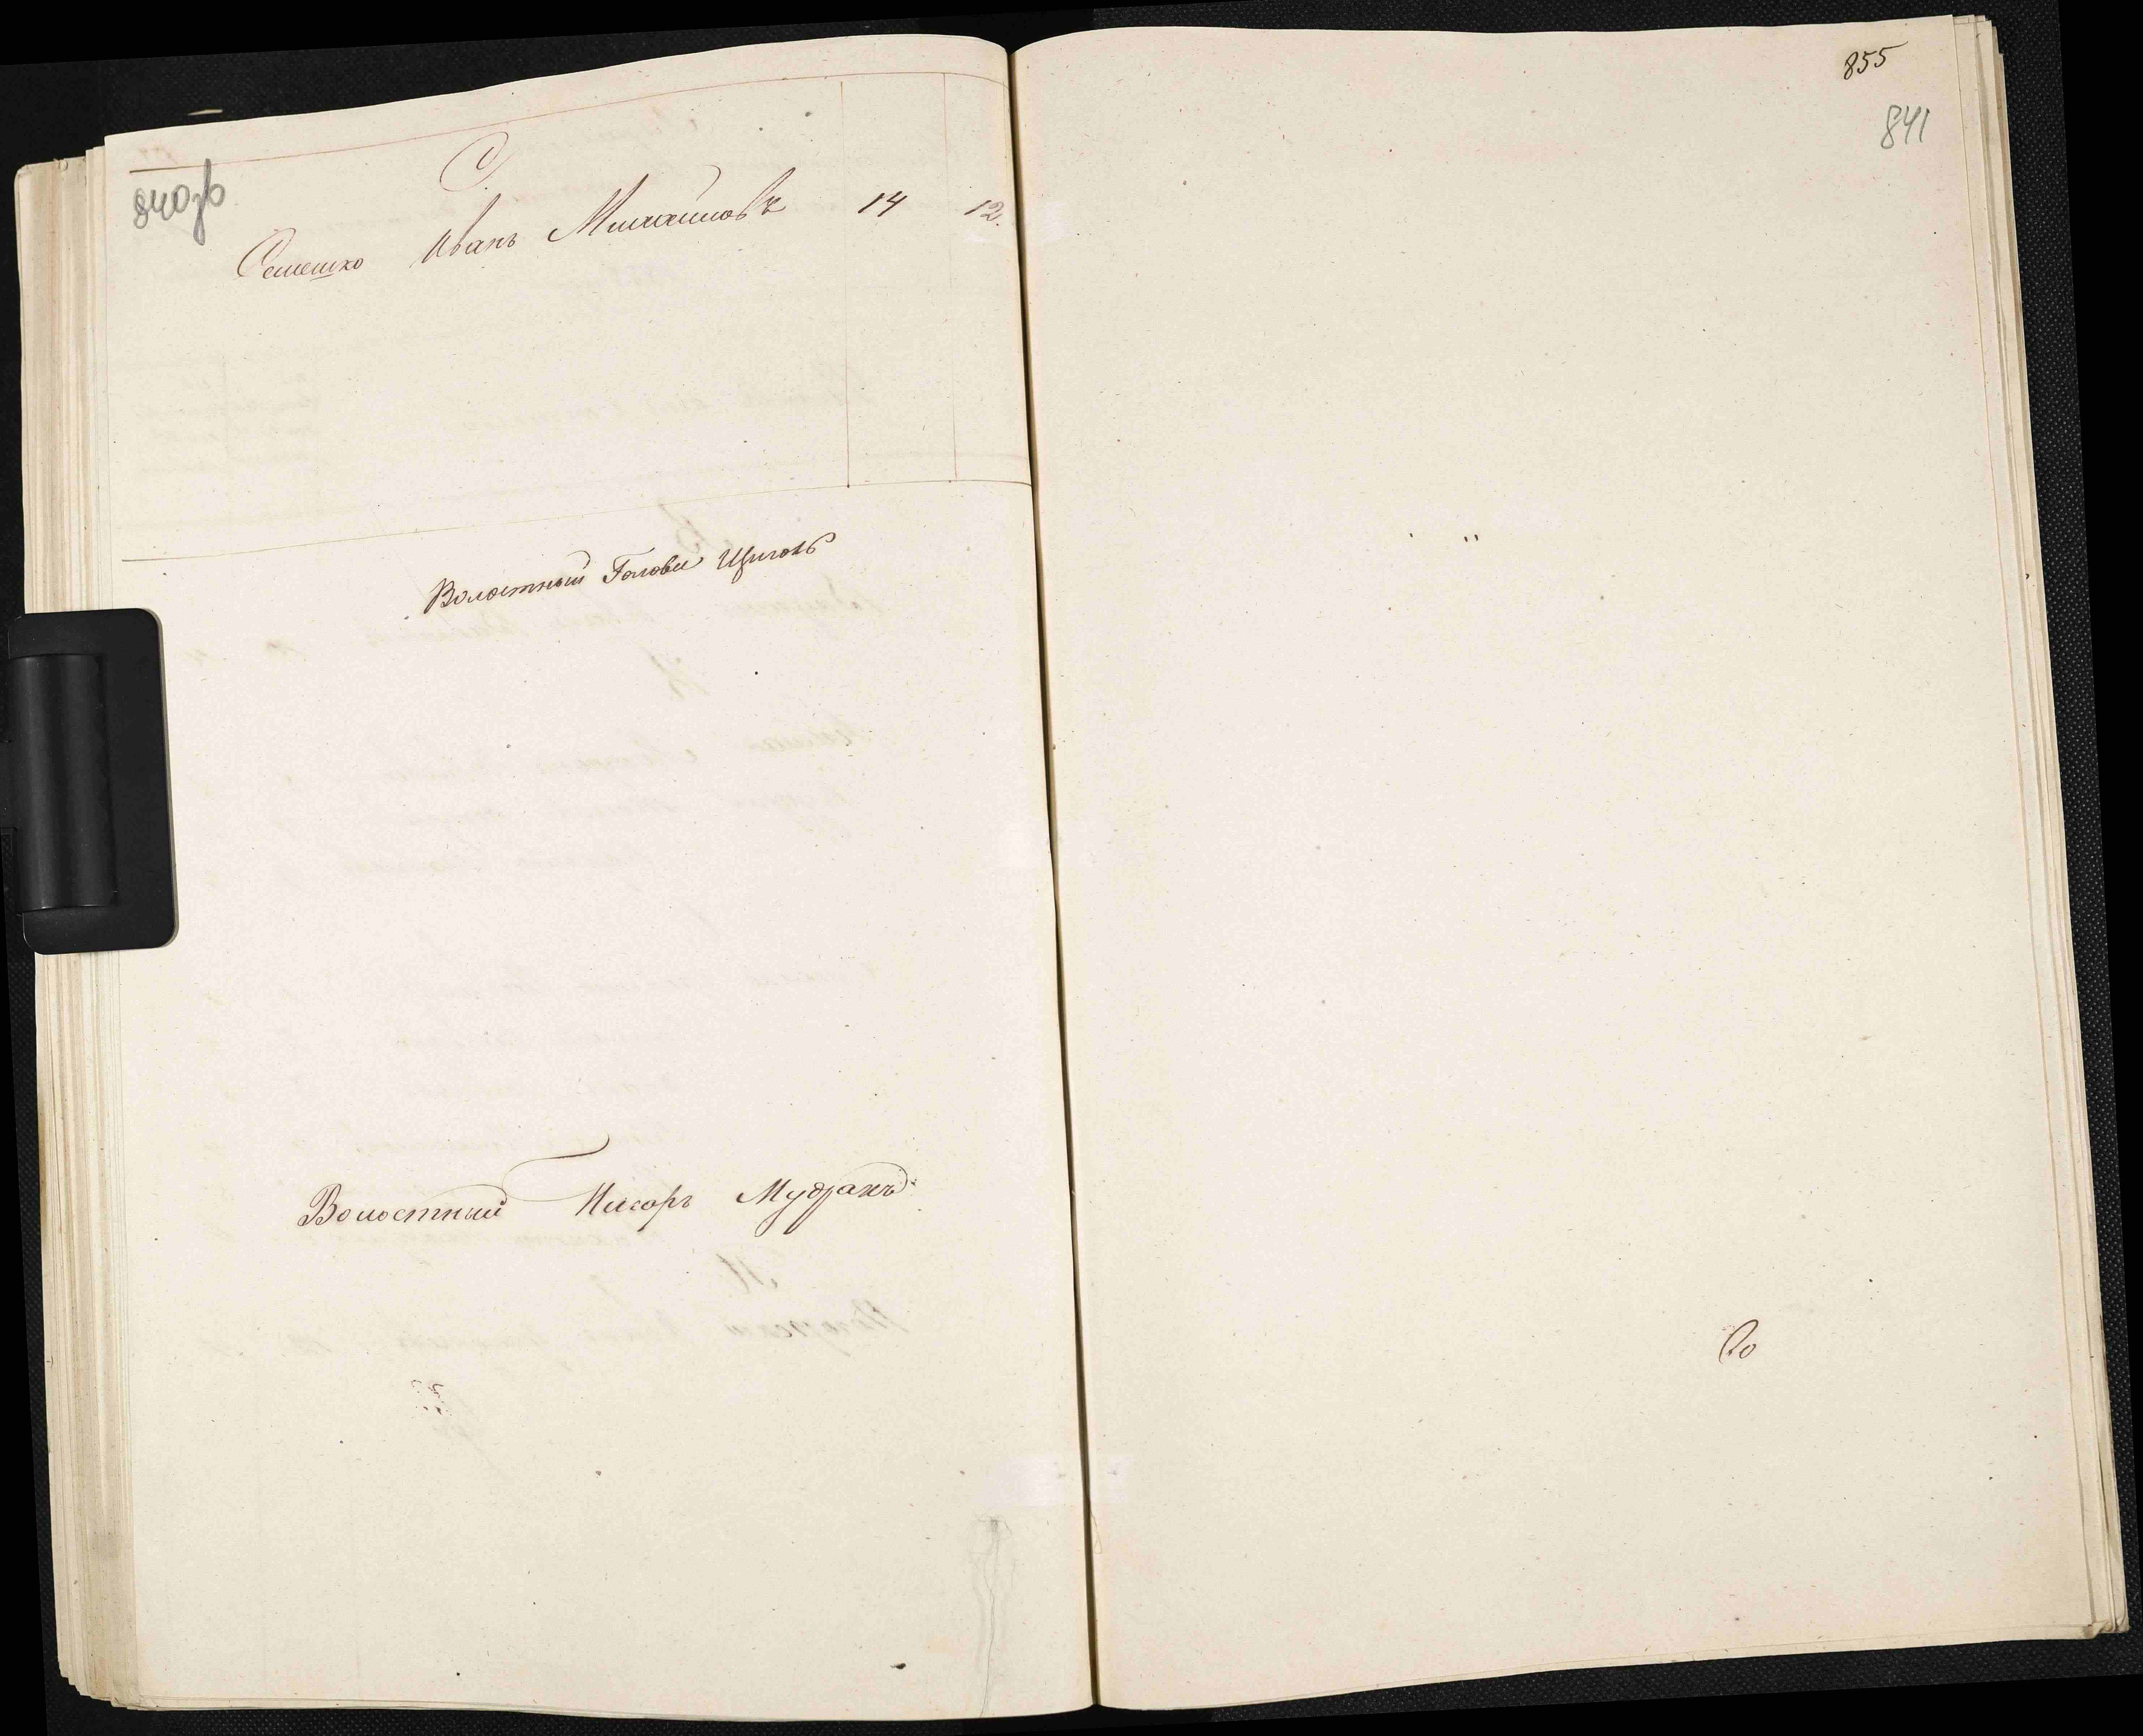 840зв
С
Семешко Иванъ Михайловъ 14 12.
Волостный Голова Щиголь
Волостный Писарь Мудракъ
855
841